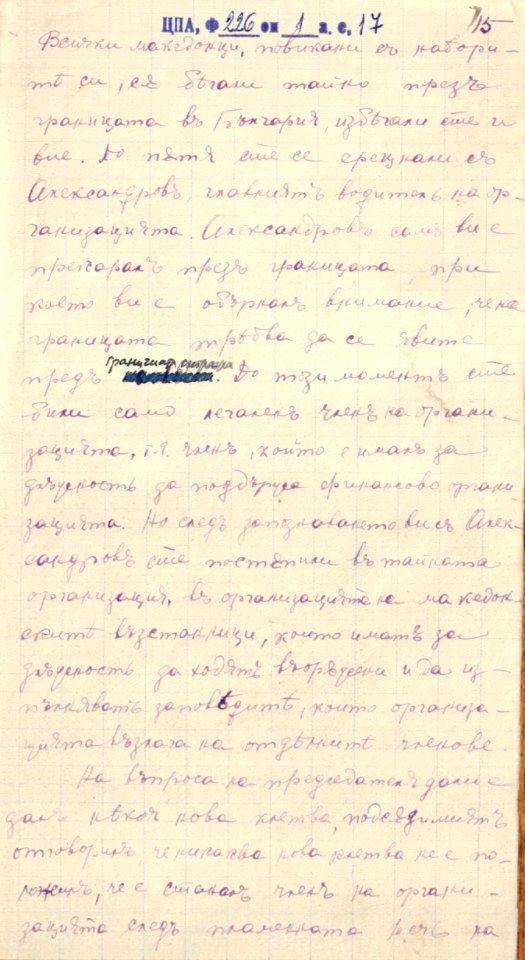 ЦПА, Ф 226 оп 1 а. е. 17
15
Всички македонци, повикани съ набори-
тѣ си, сѫ бѣгали тайно презъ
границата въ България, избѣгали сте и
вие. По пѫтя сте се срещнали съ
Александровъ, главниятъ водитель на ор-
ганизацията. Александровъ самъ ви е
прекаралъ презъ границата, при
което ви е обърналъ внимание, че на
границата трѣбва да се явите
предъ граничната стража. До този моментъ сте
били само легаленъ членъ на органи-
зацията, т. я. членъ, който е ималъ за
длъжность да поддържа финансово органи-
зацията. Но следъ запознаването ви съ Алек-
сандровъ сте постѫпили въ тайната
организация, въ организацията на македон-
скитѣ възстанници, които иматъ за
длъжность да ходятъ въорѫжени и да из-
пълняватъ заповѣдитѣ, които организа-
цията възлага на отдѣлнитѣ членове.
На въпроса на председателя дали е
далъ нѣкоя нова клетва, подсѫдимиятъ
отговорилъ, че никаква нова клетва не е по-
ложилъ, че е станалъ членъ на органи-
зацията следъ пламенната речь на